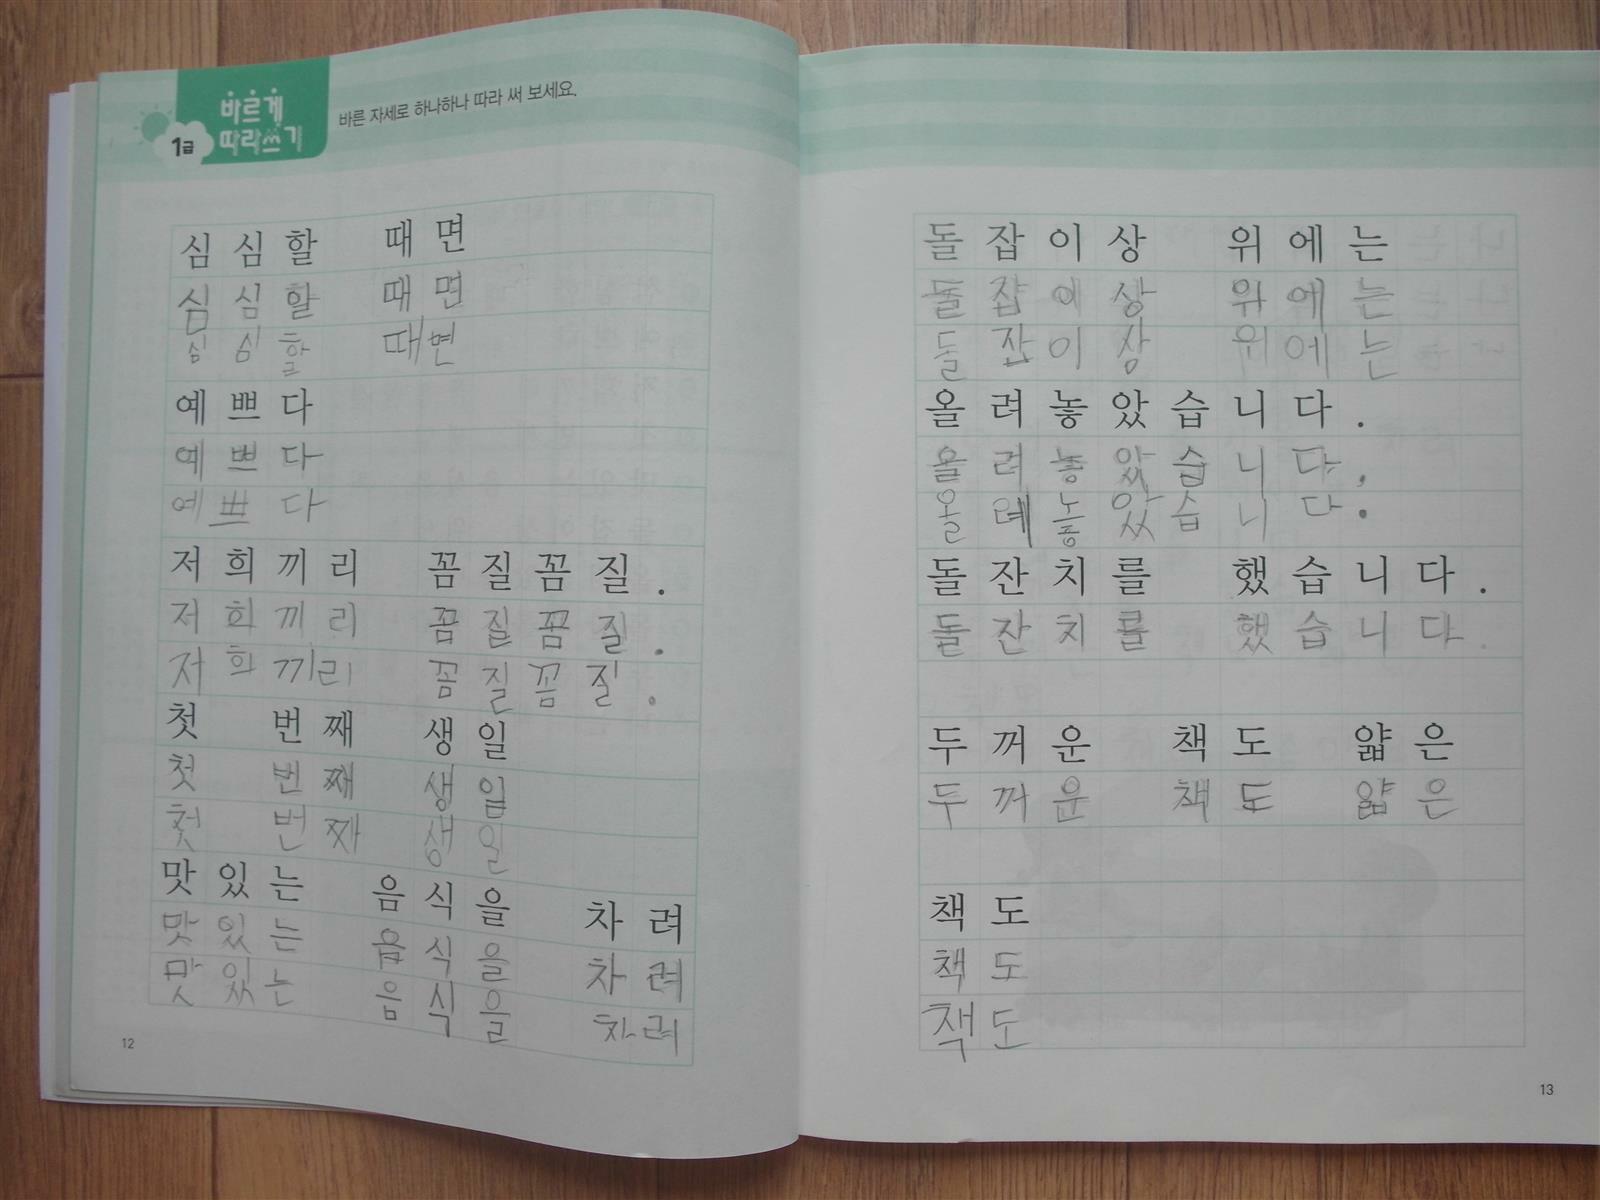 바르게
1급 따라쓰기
바른 자세로 하나하나 따라 써 보세요.
심심할 때면
심심할 때면
심심할 때면
예쁘다
예쁘다
예쁘다
저희끼리 꼼질꼼질.
저희끼리 꼼질꼼질.
저희끼리 꼼질꼼질.
첫 번째 생일
첫 번째 생일
첫 번째 생일
맛있는 음식을 차려
맛있는 음식을 차려
맛있는 음식을 차려
12
돌잡이상 위에는
돌잡이상 위에는
돌잡이상 위에는
올려놓았습니다.
올려놓았습니다.
올려놓았습니다.
돌잔치를 했습니다.
돌잔치를 했습니다.
두꺼운 책도 얇은
두꺼운 책도 얇은
책도
책도
책도
13